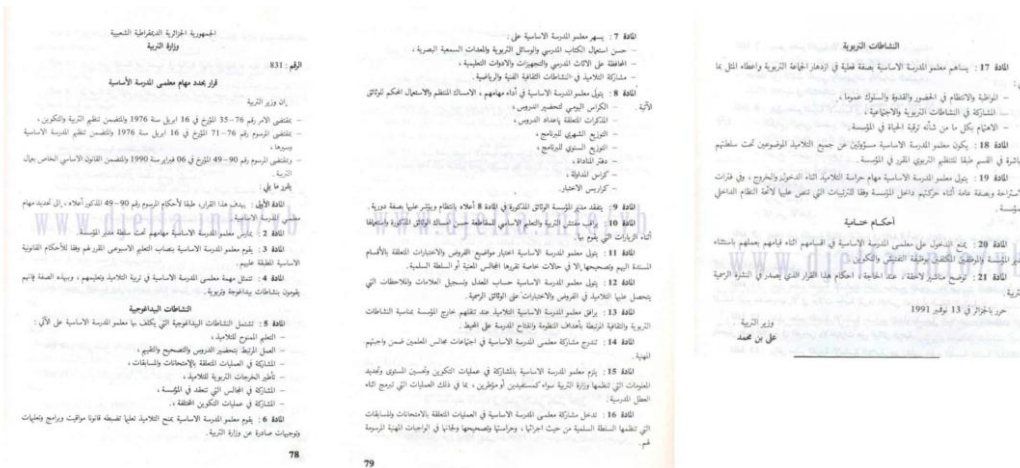 الجمهورية الجزائرية الديمقراطية الشعبية
وزارة التربية
الرقم : 831
قرار يحدد مهام معلمي المدرسة الأساسية
إن وزير التربية
– بمقتضى الأمر رقم 76–35 المؤرخ في 16 ابريل سنة 1976 والمتضمن تنظيم التربية والتكوين ،
– بمقتضى المرسوم رقم 76–71 المؤرخ في 16 ابريل سنة 1976 والمتضمن تنظيم المدرسة الاساسية
وسيرها ،
– وبمقتضى المرسوم رقم 90–49 المؤرخ في 06 فبراير سنة 1990 والمتضمن القانون الاساسي الخاص بعمال
التربية .
يقرر ما يلي :
المادة الأولى : يهدف هذا القرار، طبقا لأحكام المرسوم رقم 90–49 المذكور أعلاه ، إلى تحديد مهام
معلمي المدرسة الاساسية .
المادة 2 : يمارس معلمو المدرسة الاساسية مهامهم تحت سلطة مدير المؤسسة .
المادة 3 : يقوم معلمو المدرسة الاساسية بنصاب التعليم الاسبوعي المقرر لهم وفقا للأحكام القانونية
الاساسية المطبقة عليهم .
المادة 4 : تتمثل مهمة معلمي المدرسة الاساسية في تربية التلاميذ وتعليمهم ، وبهذه الصفة فإنهم
يقومون بنشاطات بيداغوجية وتربوية .
النشاطات البيداغوجية
المادة 5 : تشتمل النشاطات البيداغوجية التي يكلف بها معلمو المدرسة الاساسية على الآتي :
– التعليم الممنوح للتلاميذ ،
– العمل المرتبط بتحضير الدروس والتصحيح والتقييم ،
– المشاركة في العمليات المتعلقة بالإمتحانات والمسابقات ،
– تأطير الخرجات التربوية للتلاميذ ،
– المشاركة في المجالس التي تنعقد في المؤسسة ،
– المشاركة في عمليات التكوين المختلفة .
المادة 6 : يقوم معلمو المدرسة الاساسية بمنح التلاميذ تعليما تضبطه قانونا مواقيت وبرامج وتعليمات
وتوجيهات صادرة عن وزارة التربية .
78
المادة 7 : يسهر معلمو المدرسة الاساسية على :
– حسن استعمال الكتاب المدرسي والوسائل التربوية والمعدات السمعية البصرية ،
– المحافظة على الاثاث المدرسي والتجهيزات والادوات التعليمية ،
– مشاركة التلاميذ في النشاطات الثقافية الفنية والرياضية .
المادة 8 : يتولى معلمو المدرسة الاساسية في أداء مهامهم ، الامساك المنتظم والاستعمال المحكم للوثائق
الآتية .
– الكراس اليومي لتحضير الدروس ،
– المذكرات المتعلقة باعداد الدروس ،
– التوزيع الشهري للبرنامج ،
– التوزيع السنوي للبرنامج ،
– دفتر المناداة ،
– كراس المداولة ،
– كراريس الاختبار .
المادة 9 : يتفقد مدير المؤسسة الوثائق المذكورة في المادة 8 أعلاه بانتظام ويؤشر عليها بصفة دورية .
المادة 10 : يراقب مفتش التربية والتعليم الاساسي للمقاطعة حسن امساك الوثائق المذكورة واستعمالها
أثناء الزيارات التي يقوم بها .
المادة 11 : يتولى معلمو المدرسة الاساسية اختيار مواضيع الفروض والاختبارات المتعلقة بالأقسام
المسندة اليهم وتصحيحها إلا في حالات خاصة تقررها المجالس المعنية أو السلطة السلمية .
المادة 12 : يتولى معلمو المدرسة الاساسية حساب المعدل وتسجيل العلامات والملاحظات التي
يتحصل عليها التلاميذ في الفروض والاختبارات على الوثائق الرسمية .
المادة 13 : يرافق معلمو المدرسة الاساسية التلاميذ عند تنقلهم خارج المؤسسة بمناسبة النشاطات
التربوية والثقافية المرتبطة بأهداف المنظومة وانفتاح المدرسة على المحيط .
المادة 14 : تندرج مشاركة معلمي المدرسة الاساسية في اجتماعات مجالس المعلمين ضمن واجبتهم
المهنية .
المادة 15 : يلزم معلمو المدرسة الاساسية بالمشاركة في عمليات التكوين وتحسين المستوى وتجديد
المعلومات التي تنظمها وزارة التربية سواء كمستفيدين أو مؤطرين ، بما في ذلك العمليات التي تبرمج اثناء
العطل المدرسية .
المادة 16 : تدخل مشاركة معلمي المدرسة الاساسية في العمليات المتعلقة بالامتحانات والمسابقات
التي تنظمها السلطة السلمية من حيث اجرائها ، وحراستها وتصحيحها ولجانها في الواجبات المهنية المرسومة
لهم .
79
النشاطات التربوية
المادة 17 : يساهم معلمو المدرسة الاساسية بصفة فعلية في ازدهار الجماعة التربوية واعطاء المثل بما
– المواظبة والانتظام في الحضور والقدوة والسلوك عموما ،
– المشاركة في النشاطات التربوية والاجتماعية ،
– الاهتمام بكل ما من شأنه ترقية الحياة في المؤسسة .
المادة 18 : يكون معلمو المدرسة الاساسية مسؤولين عن جميع التلاميذ الموضوعين تحت سلطتهم
باشرة في القسم طبقا للتنظيم التربوي المقرر في المؤسسة .
المادة 19 : يتولى معلمو المدرسة الاساسية مهام حراسة التلاميذ اثناء الدخول والخروج ، وفي فترات
استراحة وبصفة عامة أثناء حركتهم داخل المؤسسة وفقا للترتيبات التي تنص عليها لائحة النظام الداخلي
مؤسسة .
أحكام ختامية
المادة 20 : يمنع الدخول على معلمي المدرسة الاساسية في اقسامهم اثناء قيامهم بعملهم باستثناء
دير المؤسسة والموظفين المكلفين بوظيفة التفتيش والتكوين .
المادة 21 : توضح مناشير لاحقة، عند الحاجة ، احكام هذا القرار الذي يصدر في النشرة الرسمية
تربية .
حرر بالجزائر في 13 نوفمبر 1991
وزير التربية .
علي بن محمد
www.djelfa.info/vb
www.djelfa.info/vb